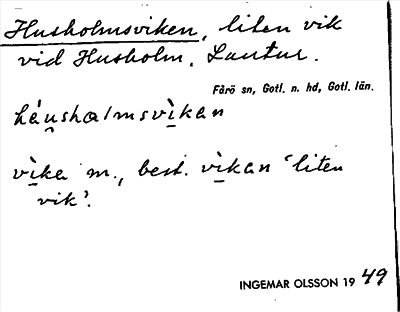 Husholmsviken, liten vik
vid Husholm, Lautur.
Fårö sn, Gotl. n. hd, Gotl. län.
háu̯shalmsvì̱kan
vì̱ka m., best. vì̱kan 'liten
vik'.
INGEMAR OLSSON 19 49